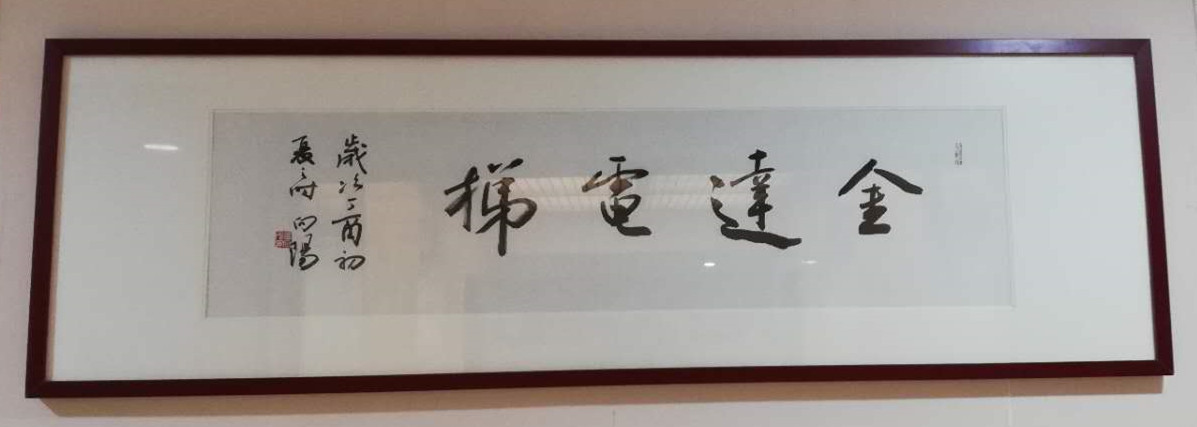 金達電梯
歲次丁酉初
夏之時向陽